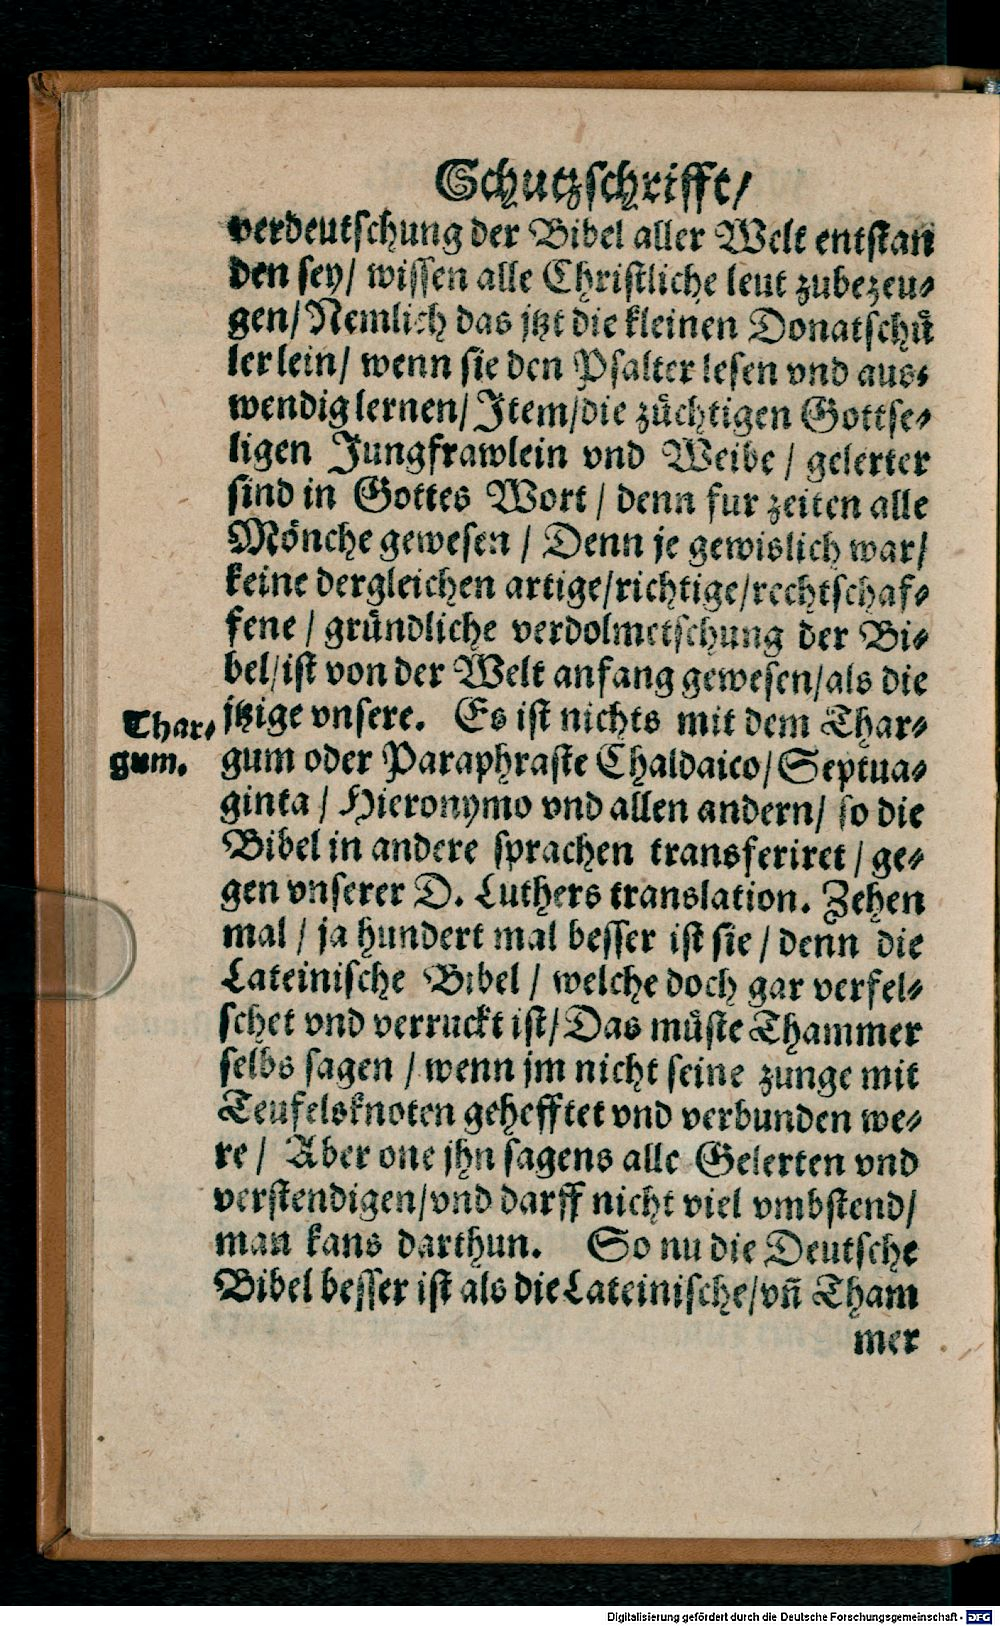 Schutzschrifft/
verdeutschung der Bibel aller Welt entstan
den sey/ wissen alle Christliche leut zubezeu⸗
gen/ Nemlich das jtzt die kleinen Donatschuͤ
ler lein/ wenn sie den Psalter lesen vnd aus⸗
wendig lernen/ Item/ die zuͤchtigen Gottse⸗
ligen Jungfrawlein vnd Weibe / gelerter
sind in Gottes Wort / denn fur zeiten alle
Moͤnche gewesen / Denn je gewislich war/
keine dergleichen artige/ richtige/ rechtschaf⸗
fene / gruͤndliche verdolmetschung der Bi⸗
bel/ ist von der Welt anfang gewesen/ als die
Thar⸗
gum.
jtzige vnsere. Es ist nichts mit dem Thar⸗
gum oder Paraphraste Chaldaico/ Septua⸗
ginta / Hieronymo vnd allen andern/ so die
Bibel in andere sprachen transferiret / ge⸗
gen vnserer D. Luthers translation. Zehen
mal / ja hundert mal besser ist sie / denn die
Lateinische Bibel / welche doch gar verfel⸗
schet vnd verruckt ist/ Das muͤste Thammer
selbs sagen / wenn jm nicht seine zunge mit
Teufelsknoten gehefftet vnd verbunden we⸗
re / Aber one jhn sagens alle Gelerten vnd
verstendigen/ vnd darff nicht viel vmbstend/
man kans darthun. So nu die Deutsche
Bibel besser ist als die Lateinische/ vn̄ Tham
mer
Digitalisierung gefördert durch die Deutsche Forschungsgemeinschaft - DFG